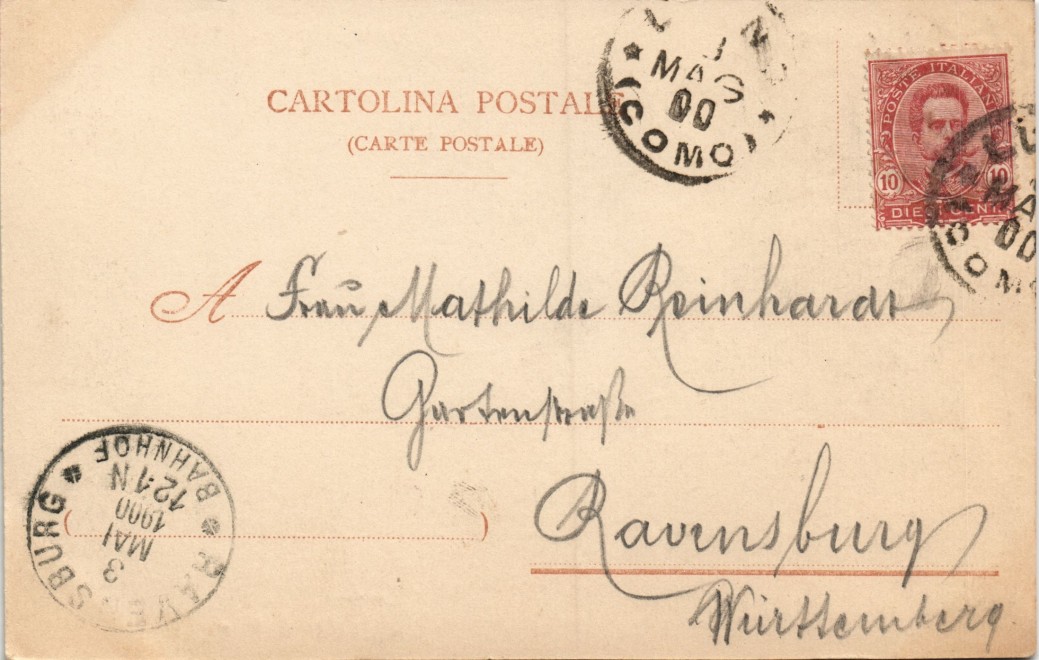 CARTOLINA POSTALE
(CARTE POSTALE)
MAG
00
(COMO)
POSTE ITALIANE
10 10
DIECI CENT
MA
00
COMO
A Frau Mathilde Reinhardt
Gartenstraße
Ravensburg
Württemberg
RAVENSBURG
BAHNHOF
3
MAI
1900
12-1 N